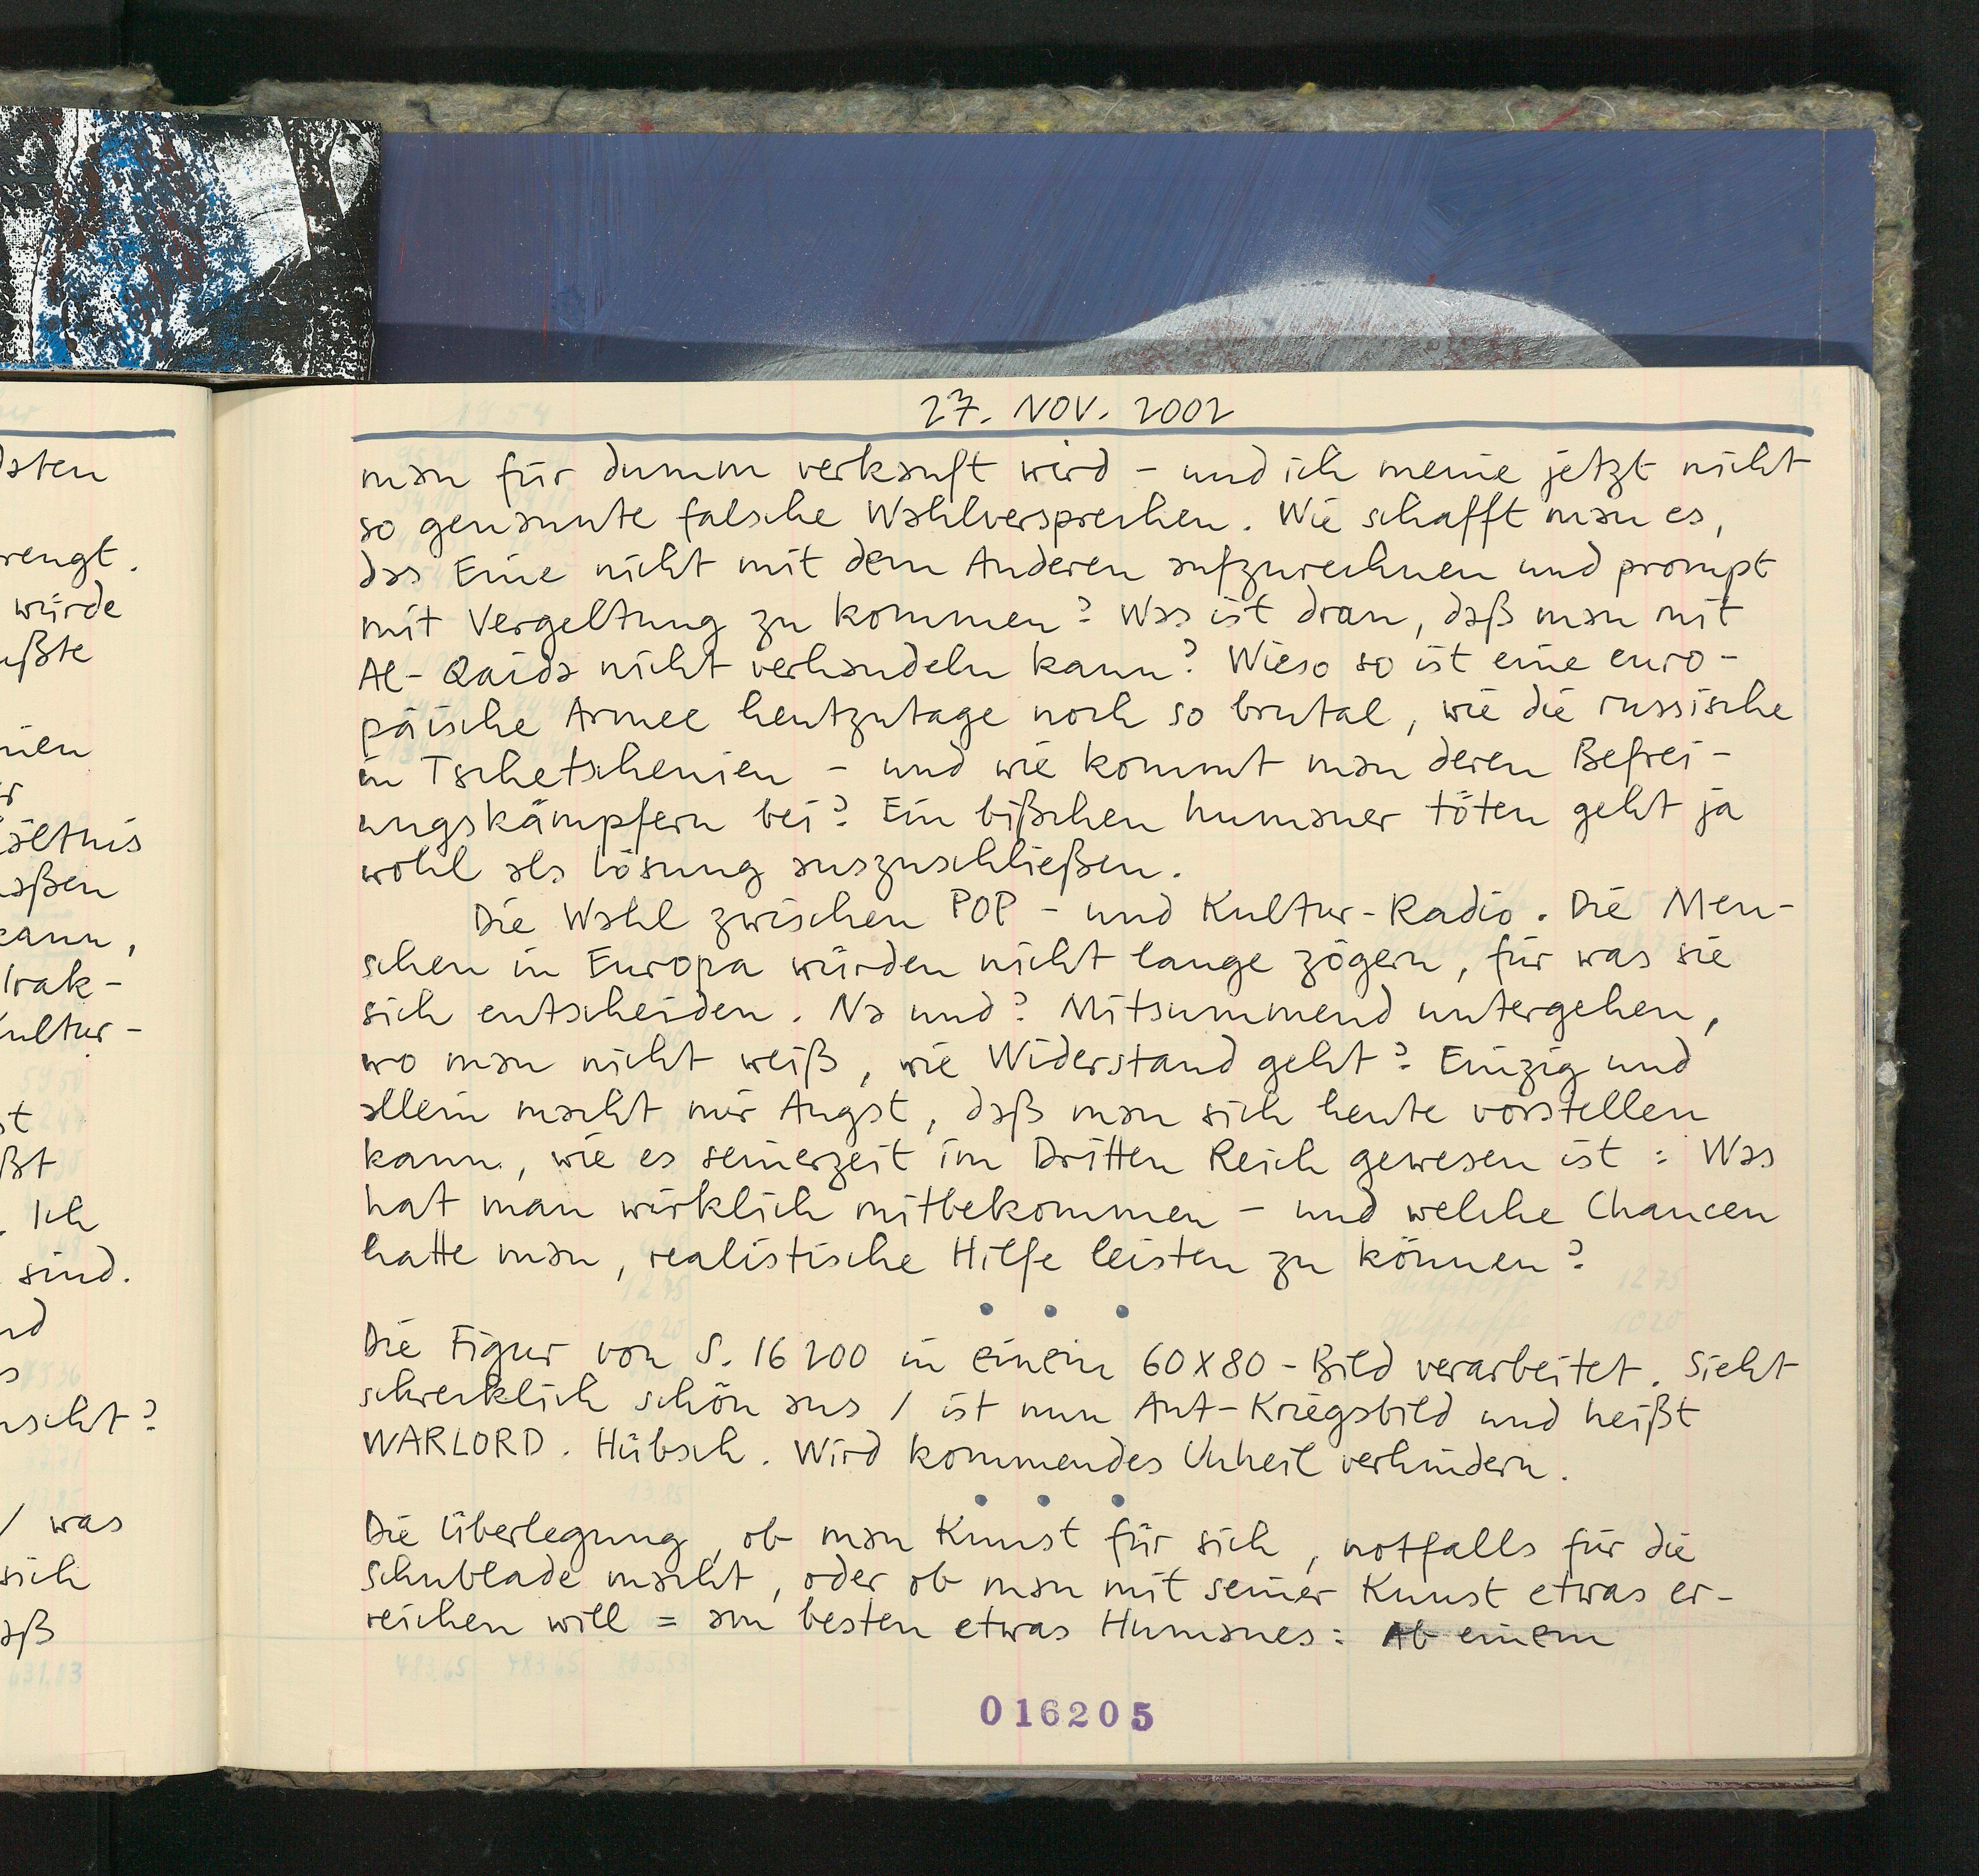 27. NOV. 2002
man für dumm verkauft wird – und ich meine jetzt nicht
so genannte falsche Wahlversprechen. Wie schafft man es,
das Eine nicht mit dem Anderen aufzurechnen und prompt
mit Vergeltung zu kommen? Was ist dran, daß man mit
Al-Qaida nicht verhandeln kann? Wieso so ist eine euro-
päische Armee heutzutage noch so brutal, wie die russische
in Tschetschenien – und wie kommt man deren Befrei-
ungskämpfern bei? Ein bißchen humaner töten geht ja
wohl als Lösung auszuschließen.
Die Wahl zwischen POP- und Kultur-Radio. Die Men-
schen in Europa würden nicht lange zögern, für was sie
sich entscheiden. Na und? Mitsummend untergehen,
wo man nicht weiß, wie Widerstand geht? Einzig und
allein macht mir Angst, daß man sich heute vorstellen
kann, wie es seinerzeit im Dritten Reich gewesen ist: Was
hat man wirklich mitbekommen – und welche Chancen
hatte man, realistische Hilfe leisten zu können?
• • •
Die Figur von S. 16200 in einem 60X80-Bild verarbeitet. Sieht
schrecklich schön aus / ist nun Ant-Kriegsbild und heißt
WARLORD. Hübsch. Wird kommendes Unheil verhindern.
• • •
Die Überlegung, ob man Kunst für sich, notfalls für die
Schublade macht, oder ob man mit seiner Kunst etwas er-
reichen will = am besten etwas Humanes: Ab einem
016205